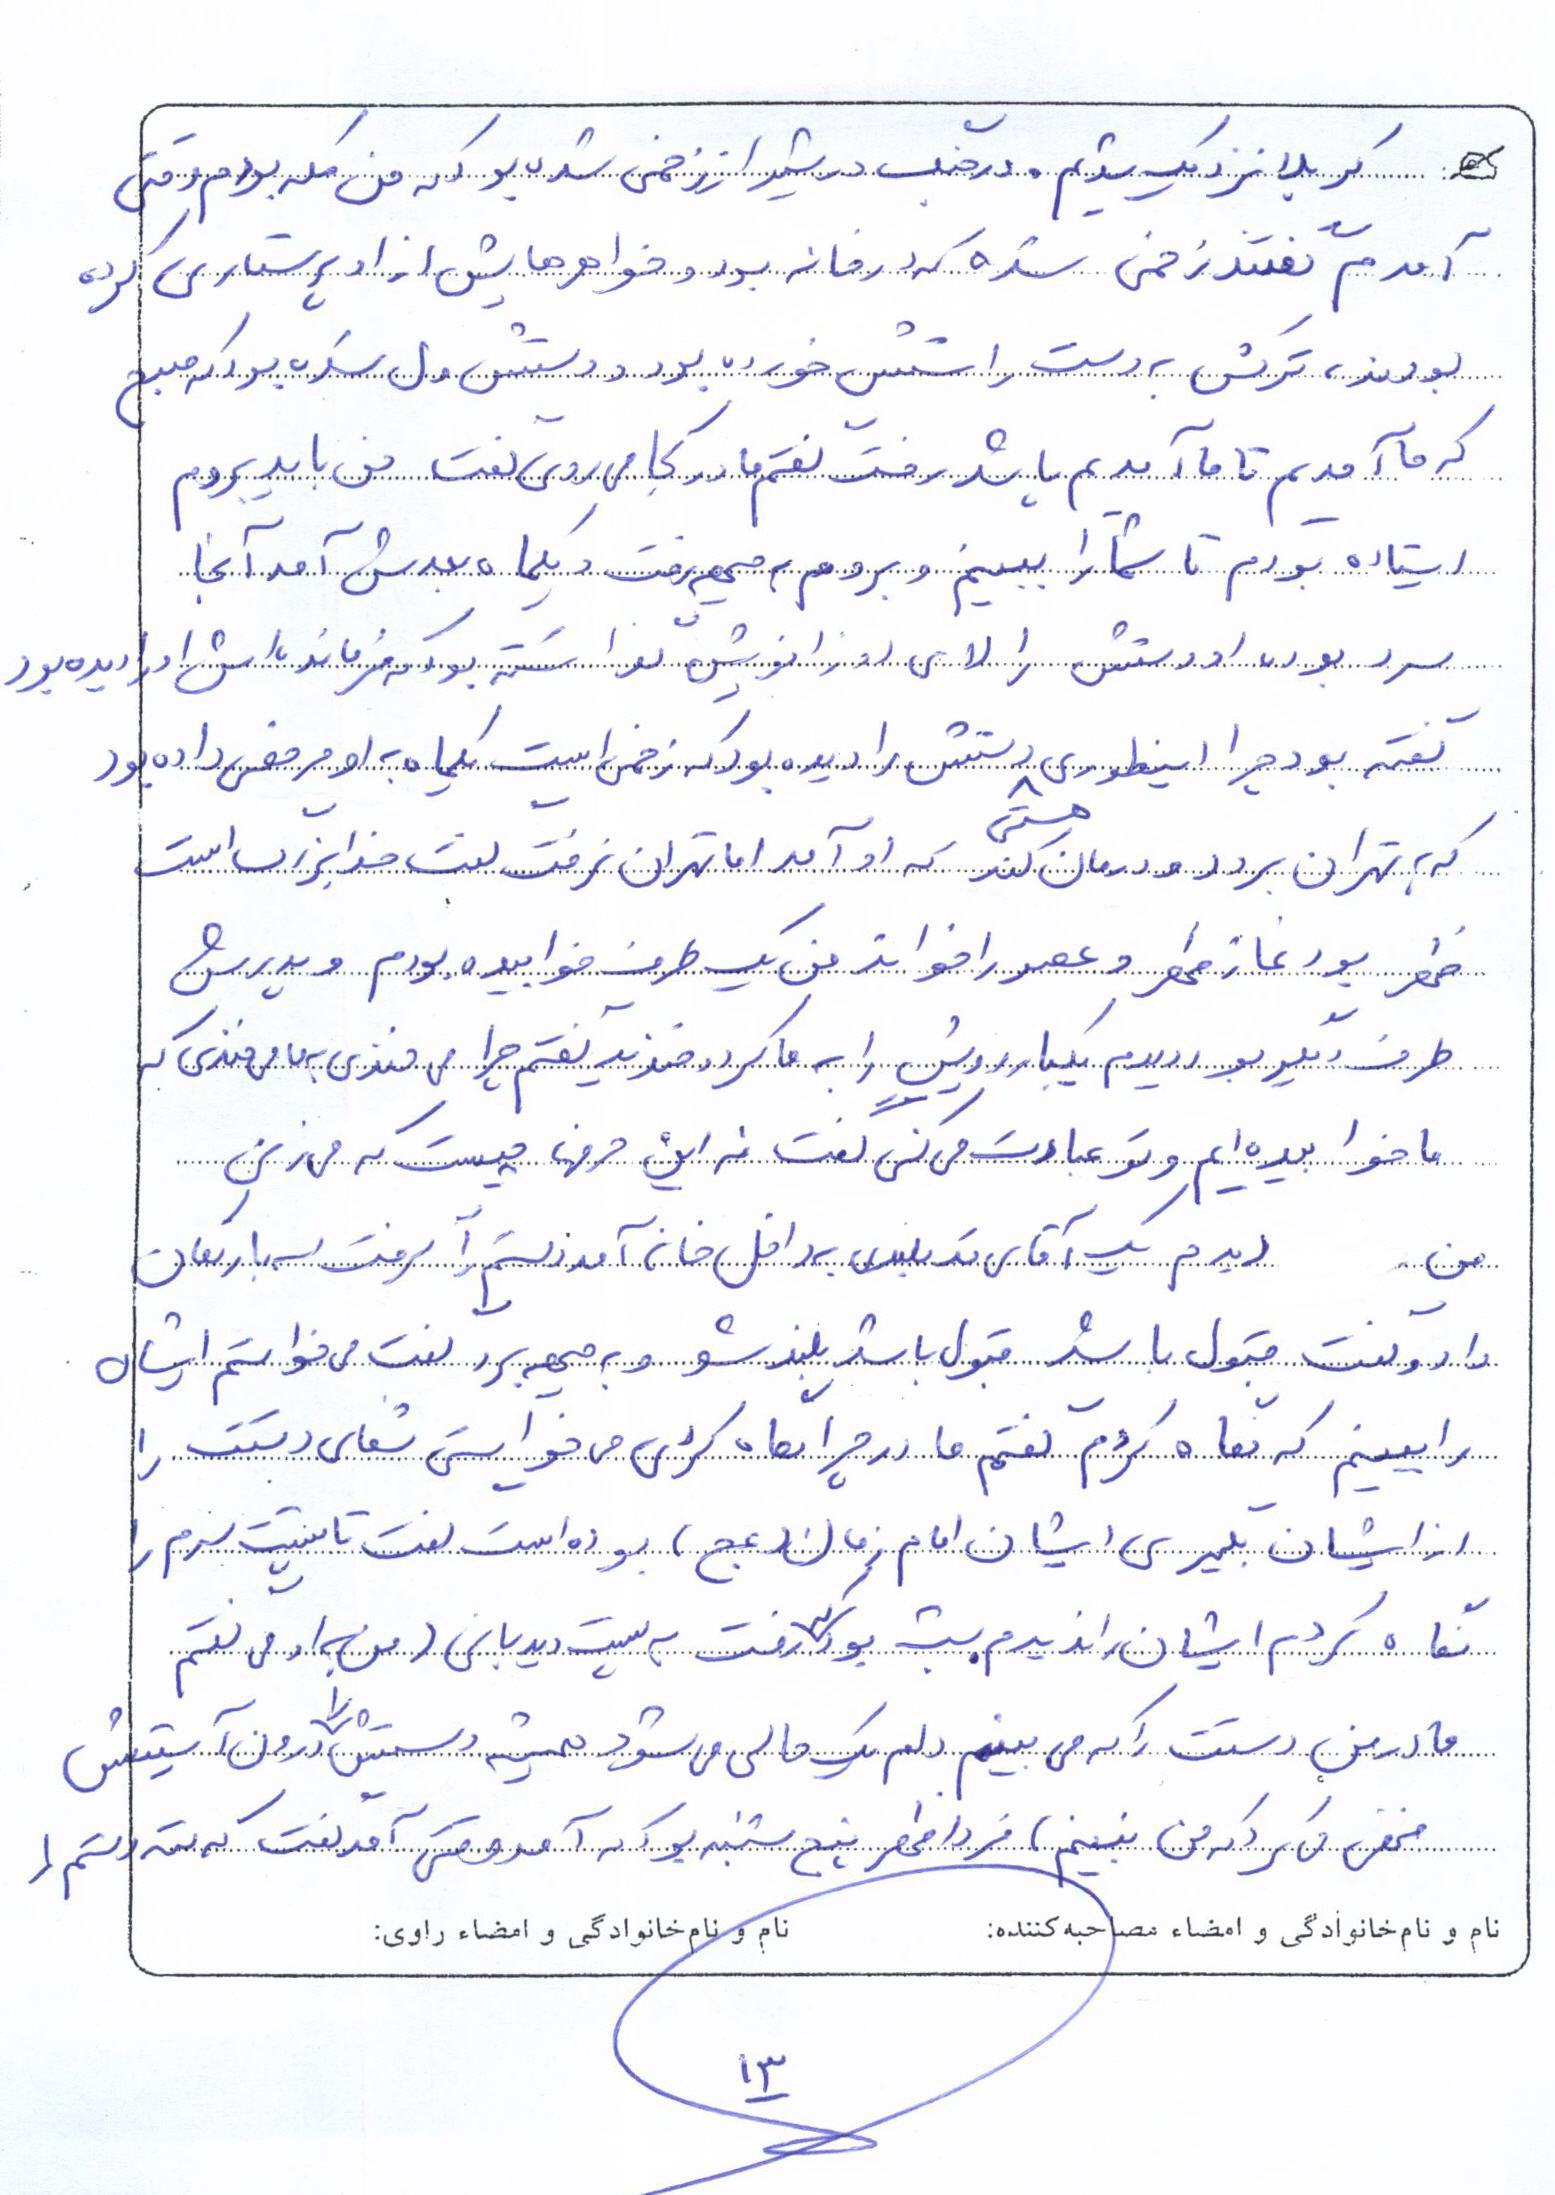 کربلا نزدیک شدیم. در جنگ در شیراز زخمی شده بود که من مکه بودم وقتی
آمدم گفتند زخمی شده که در خانه بود و خواهرهایش از او پرستاری کرده
بودند، ترکش به دست راستش خورده بود و دستش ول شده بود که صبح
که ما آمدیم تا ما آمدیم پا شد رفت گفتم مادر کجا می روی گفت من باید بروم
ایستاده بودم تا شما را ببینم و بروم به جبهه رفت و یکماه بعدش آمد آنجا
سرد بوده او دستش را لای دو زانویش گذاشته بود که فرمانده اش او را دیده بود
گفته بود چرا اینطوری هستی دستش را دیده بود که زخمی است یکماه به او مرخصی داده بود
که به تهران برود و درمان کند که او آمد اما تهران نرفت گفت خدا بزرگ است
ظهر بود نماز ظهر و عصر را خواند من یک طرف خوابیده بودم و پدرش
طرف دیگر بود دیدم یکبار رویش را به ما کرد خندید گفتم چرا می خندی به ما می خندی که
ما خوابیده ایم و تو عبادت می کنی گفت نه این حرفها چیست که می زنی
من دیدم یک آقای قد بلندی به داخل خانه آمد دستم را گرفت سه بار تکان
داد و گفت قبول باشد قبول باشد بلند شو و به جبهه برو گفت می خواستم ایشان
را ببینم که نگاه کردم گفتم مادر چرا نگاه کردی می خواستی شفای دستت را
از ایشان بگیری ایشان امام زمان (عج) بوده است گفت تا سرم را
نگاه کردم ایشان را ندیدم. بود که رفت به دیدبانی (من به او می گفتم
مادر من دستت را که می بینم دلم یک حالی می شود همیشه دستش را درون آستینش
مخفی می کرد که من نبینم) فردا ظهر پنج شنبه بود که آمد وقتی آمد گفت که دستم را
نام و نام خانوادگی و امضاء مصاحبه کننده: نام و نام خانوادگی و امضاء راوی:
۱۳